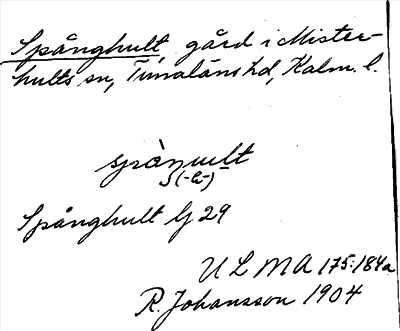 Spånghult, gård i Mister-
hults sn, Tunaläns hd, Kalm. l.
spån͡uult
(-ù-)
Spånghult Gj 29
ULMA 175:184a
R. Johansson 1904